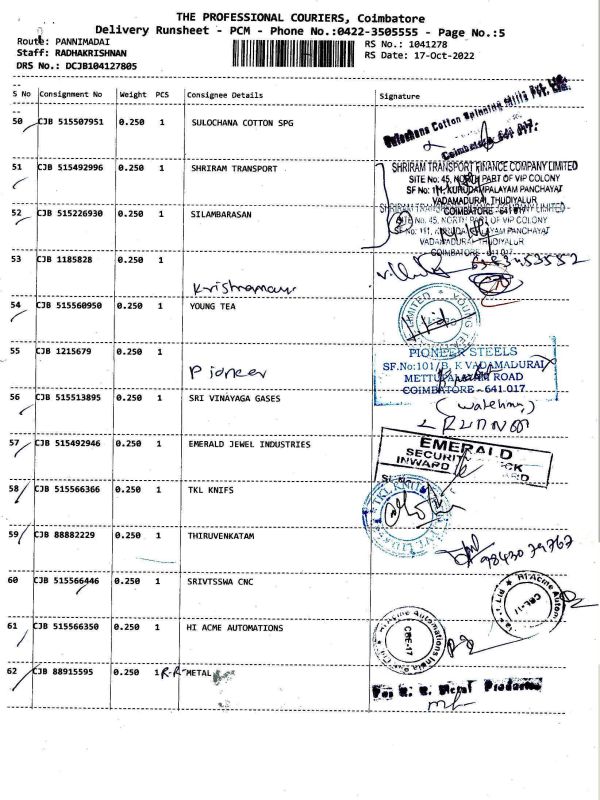 THE PROFESSIONAL COURIERS, Coimbatore
Delivery Runsheet - PCM - Phone No.:0422-3505555 - Page No.:5
Route: PANNIMADAI
RS No.: 1041278
Staff: RADHAKRISHNAN
RS Date: 17-Oct-2022
DRS No.: DCJB104127805
S No Consignment No Weight PCS Consignee Details Signature
50 CJB 515507951 0.250 1 SULOCHANA COTTON SPG
Sulochana Cotton Spinning Mills Pvt. Ltd.
Coimbatore - 641 017.
51 CJB 515492996 0.250 1 SHRIRAM TRANSPORT
SHRIRAM TRANSPORT FINANCE COMPANY LIMITED
SITE No. 45, NORTH PART OF VIP COLONY
SF No: 111, KURUDAMPALAYAM PANCHAYAT
VADAMADURAI, THUDIYALUR
COIMBATORE - 641 017
52 CJB 515226930 0.250 1 SILAMBARASAN
SHRIRAM TRANSPORT FINANCE COMPANY LIMITED
SITE No. 45, NORTH PART OF VIP COLONY
SF No: 111, KURUDAMPALAYAM PANCHAYAT
VADAMADURAI, THUDIYALUR
COIMBATORE - 641 017
53 CJB 1185828 0.250 1
54 CJB 515560950 0.250 1 YOUNG TEA
LIMITED YOUNG TEA
55 CJB 1215679 0.250 1
Pioneer
PIONEER STEELS
SF.No:101/B, K VADAMADURAI
METTUPALAYAM ROAD
COIMBATORE - 641 017
56 CJB 515513895 0.250 1 SRI VINAYAGA GASES
57 CJB 515492946 0.250 1 EMERALD JEWEL INDUSTRIES
EMERALD
SECURITY
INWARD
58 CJB 515566366 0.250 1 TKL KNIFS
59 CJB 88882229 0.250 1 THIRUVENKATAM
60 CJB 515566446 0.250 1 SRIVTSSWA CNC
Hi Acme Autom
61 CJB 515566350 0.250 1 HI ACME AUTOMATIONS
Hi Acme Automations India
CBE-17
62 CJB 88915595 0.250 1 R-R METAL
For R. R. Metal Products